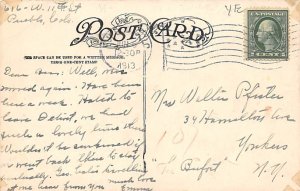 616-W. 11th St
Pueblo, Colo.
POST CARD
THIS SPACE CAN BE USED FOR A WRITTEN MESSAGE.
1913
Dear Anna: Well, have
moved again. Have been
here a week. Hated to
leave Detroit, we had
such a lovely time there
Wouldn't be surprised if
we went back there to stay
eventually. Let
me hear from you.
much love
Emma
Mrs Willis Pfister
34 Hamilton Ave
Yonkers
N.Y.
YE